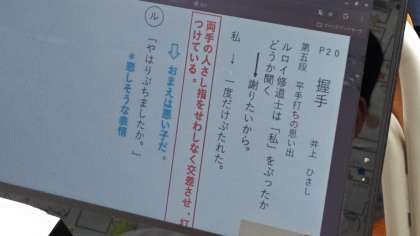 P20
握手
井上 ひさし
第五段 平手打ちの思い出
ルロイ修道士は「私」をぶったか
どうか聞く
→謝りたいから。
私 → 一度だけぶたれた。
両手の人さし指をせわしなく交差させ、打
つけている。
⇩ おまえは悪い子だ。
ル
「やはりぶちましたか。」
*悲しそうな表情